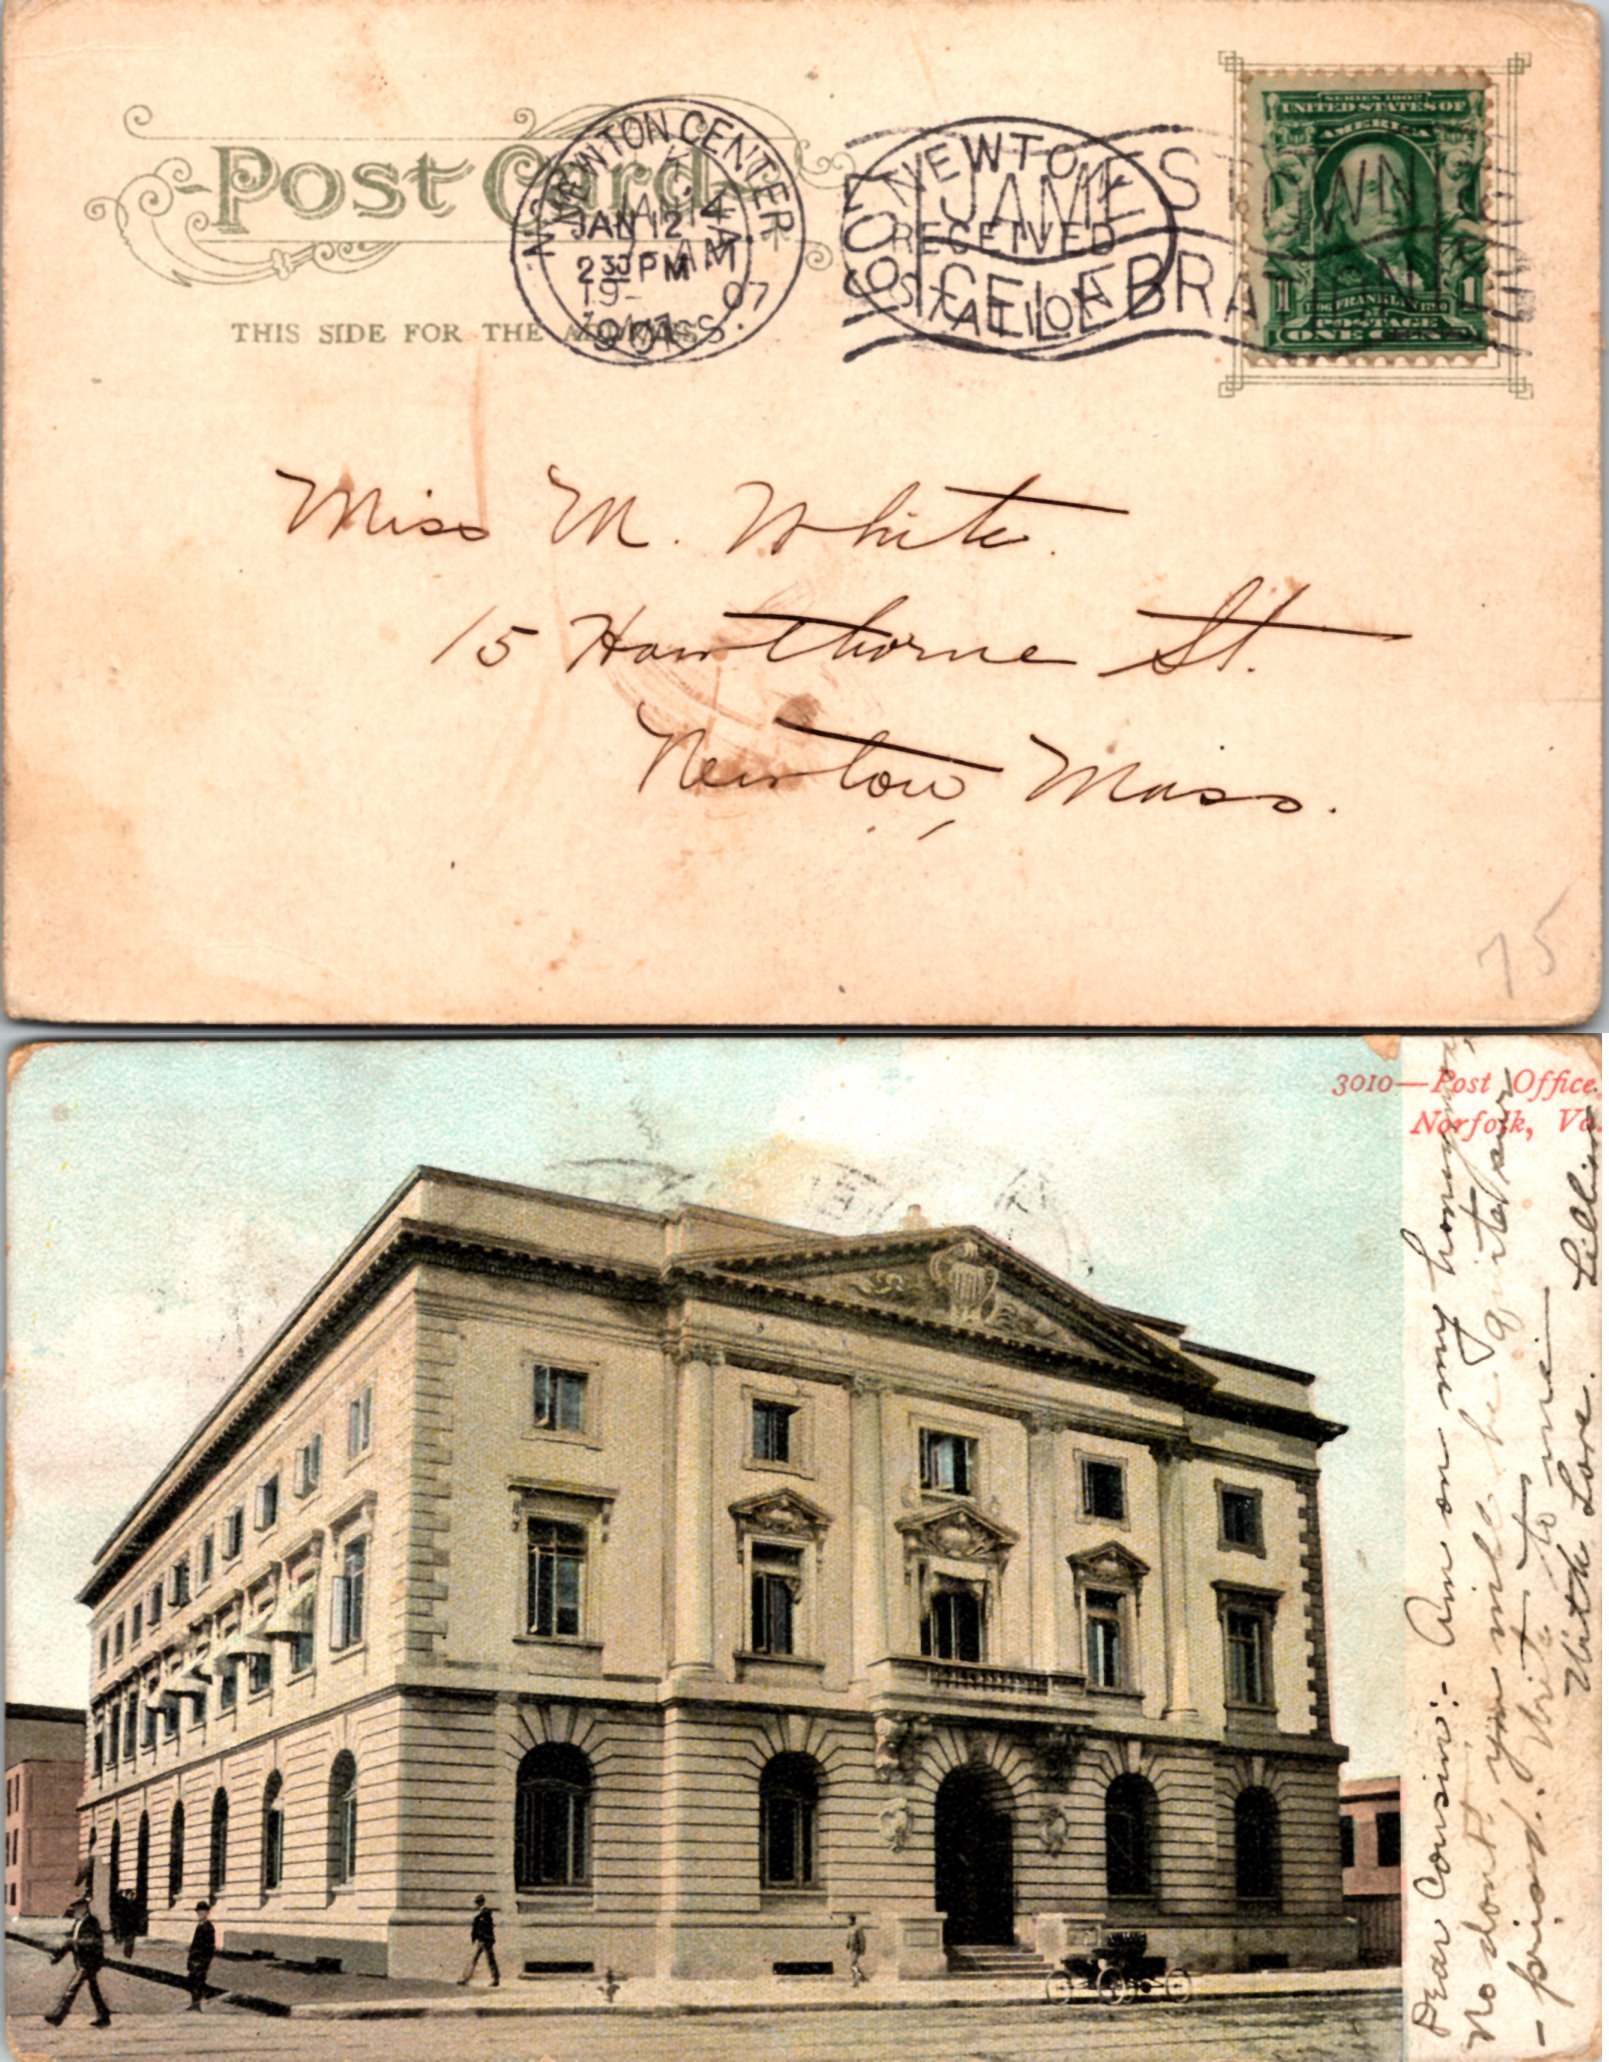 Post Card
THIS SIDE FOR THE ADDRESS.
NEWTON CENTER
JAN 12
2 30 PM
1907
MASS.
NEWTON
RECEIVED
STATION
JAMESTOWN
CELEBRATION
SERIES 1902
UNITED STATES OF
AMERICA
1 FRANKLIN 1
POSTAGE
ONE CENT
Miss M. White.
15 Hawthorne St.
Newton, Mass.
75
3010—Post Office,
Norfolk, Va.
Dear Cousin:- Am on my honeymoon,
No dont you will be quite sur
- prised. Write to me
With Love. Lillian